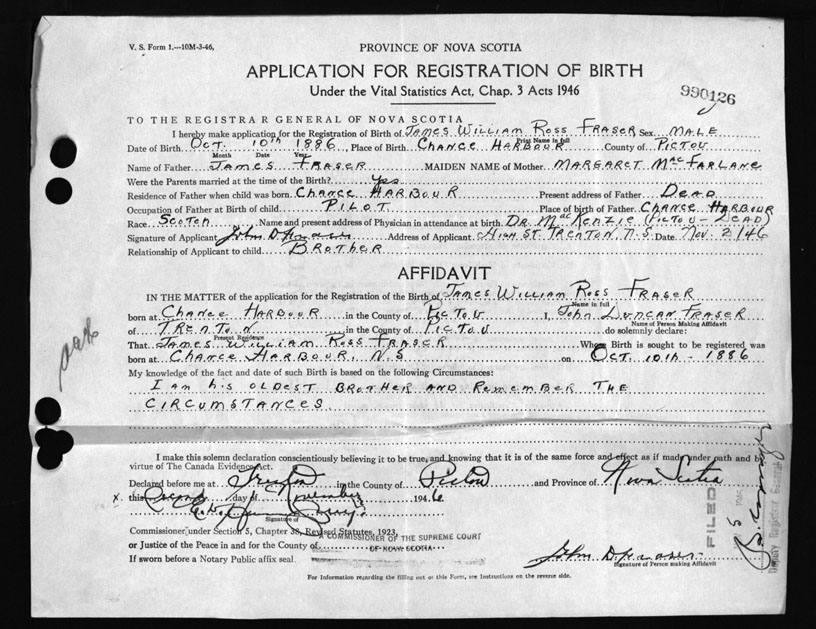 V. S. Form 1.—10M-3-46,
PROVINCE OF NOVA SCOTIA
APPLICATION FOR REGISTRATION OF BIRTH
Under the Vital Statistics Act, Chap. 3 Acts 1946
990126
TO THE REGISTRAR GENERAL OF NOVA SCOTIA
I hereby make application for the Registration of Birth of James William Ross Fraser Sex Male
Print Name in full
Date of Birth Oct. 10th 1886, Place of Birth Chance Harbour County of Pictou
Month Date Year
Name of Father James Fraser MAIDEN NAME of Mother Margaret MacFarlane
Were the Parents married at the time of the Birth? Yes
Residence of Father when child was born Chance Harbour Present address of Father Dead
Occupation of Father at Birth of child Pilot Place of birth of Father Chance Harbour
Race Scotch Name and present address of Physician in attendance at birth Dr. MacKenzie (Pictou - Dead)
Signature of Applicant John D Fraser Address of Applicant High St. Trenton N.S. Date Nov. 2/46
Relationship of Applicant to child Brother
AFFIDAVIT
IN THE MATTER of the application for the Registration of the Birth of James William Ross Fraser
Name in full
born at Chance Harbour in the County of Pictou I, John Duncan Fraser
Name of Person Making Affidavit
of Trenton in the County of Pictou do solemnly declare:
Present Residence
That James William Ross Fraser Whose Birth is sought to be registered was
born at Chance Harbour, N.S on Oct. 10th - 1886
My knowledge of the fact and date of such Birth is based on the following Circumstances:
I am his oldest brother and remember the
circumstances
I make this solemn declaration conscientiously believing it to be true, and knowing that it is of the same force and effect as if made under oath and by
virtue of The Canada Evidence Act.
Declared before me at Trenton in the County of Pictou and Province of Nova Scotia
x this Second day of November 1946
Signature of
Commissioner under Section 5, Chapter 38, Revised Statutes, 1923,
A COMMISSIONER OF THE SUPREME COURT
or Justice of the Peace in and for the County of
OF NOVA SCOTIA
If sworn before a Notary Public affix seal
John D Fraser
Signature of Person making Affidavit
For Information regarding the filling out of this Form, see Instructions on the reverse side.
FILED
Deputy Registrar General